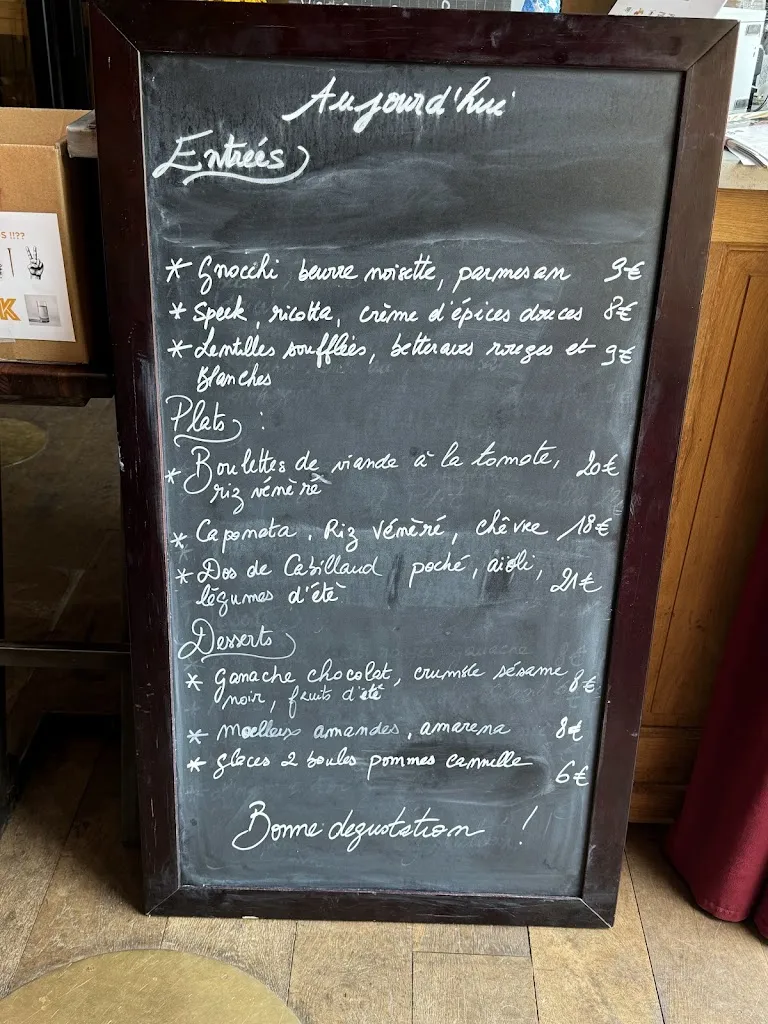 Aujourd'hui
Entrées
* Gnocchi beurre noisette, parmesan 9€
* Speck, ricotta, crème d'épices douces 8€
* Lentilles soufflées, betteraves rouges et 9€
Blanches
Plats :
* Boulettes de viande à la tomate, 20€
riz vénèré
* Caponata, Riz vénèré, chêvre 18€
* Dos de Cabillaud poché, aïoli, 21€
légumes d'étè
Desserts
* ganache chocolat, crumble sésame 8€
noir, fruits d'été
* moelleux amandes, amarena 8€
* glaces 2 boules pommes cannelle 6€
Bonne degustation !
S !!??
K